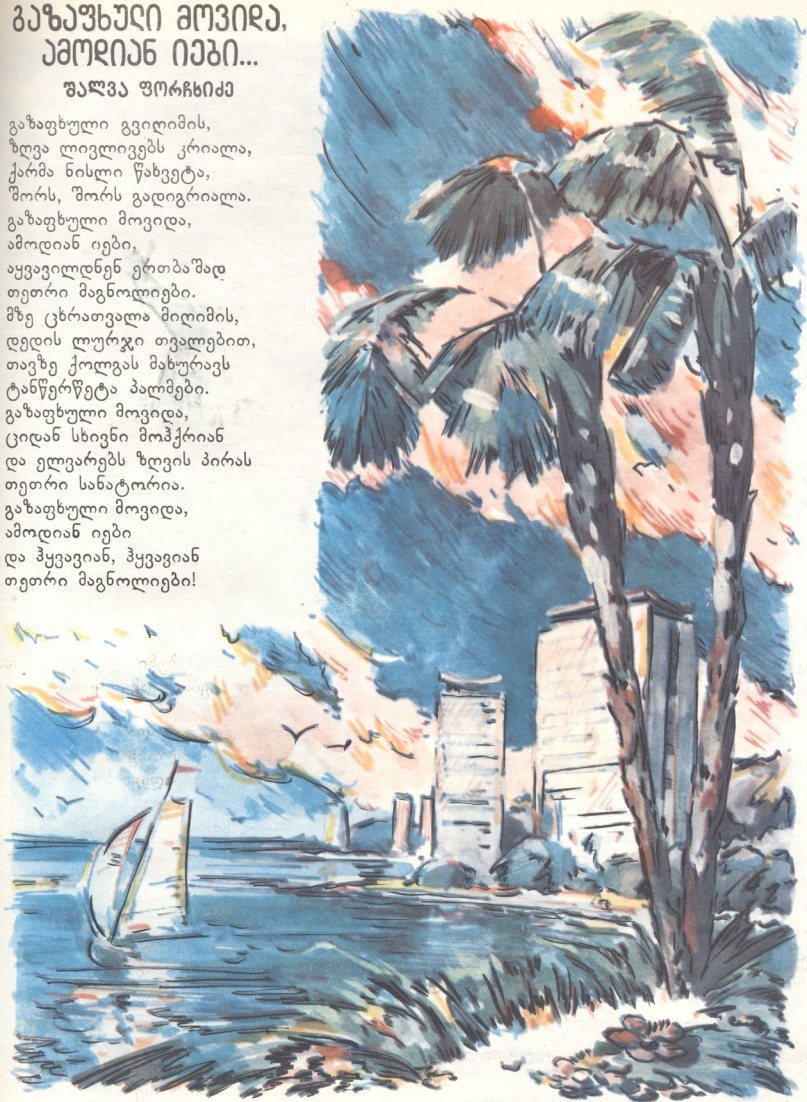 გაზაფხული მოვიდა,
ამოდიან იები...
შალვა ფორჩხიძე
გაზაფხული გვიღიმის,
ზღვა ლივლივებს კრიალა,
ქარმა ნისლი წახვეტა,
შორს, შორს გადიგრიალა.
გაზაფხული მოვიდა,
ამოდიან იები,
აყვავილდნენ ერთბაშად
თეთრი მაგნოლიები.
მზე ცხრათვალა მიღიმის,
დედის ლურჯი თვალებით,
თავზე ქოლგას მახურავს
ტანწერწეტა პალმები.
გაზაფხული მოვიდა,
ციდან სხივნი მოჰქრიან
და ელვარებს ზღვის პირას
თეთრი სანატორია.
გაზაფხული მოვიდა,
ამოდიან იები
და ჰყვავიან, ჰყვავიან
თეთრი მაგნოლიები!